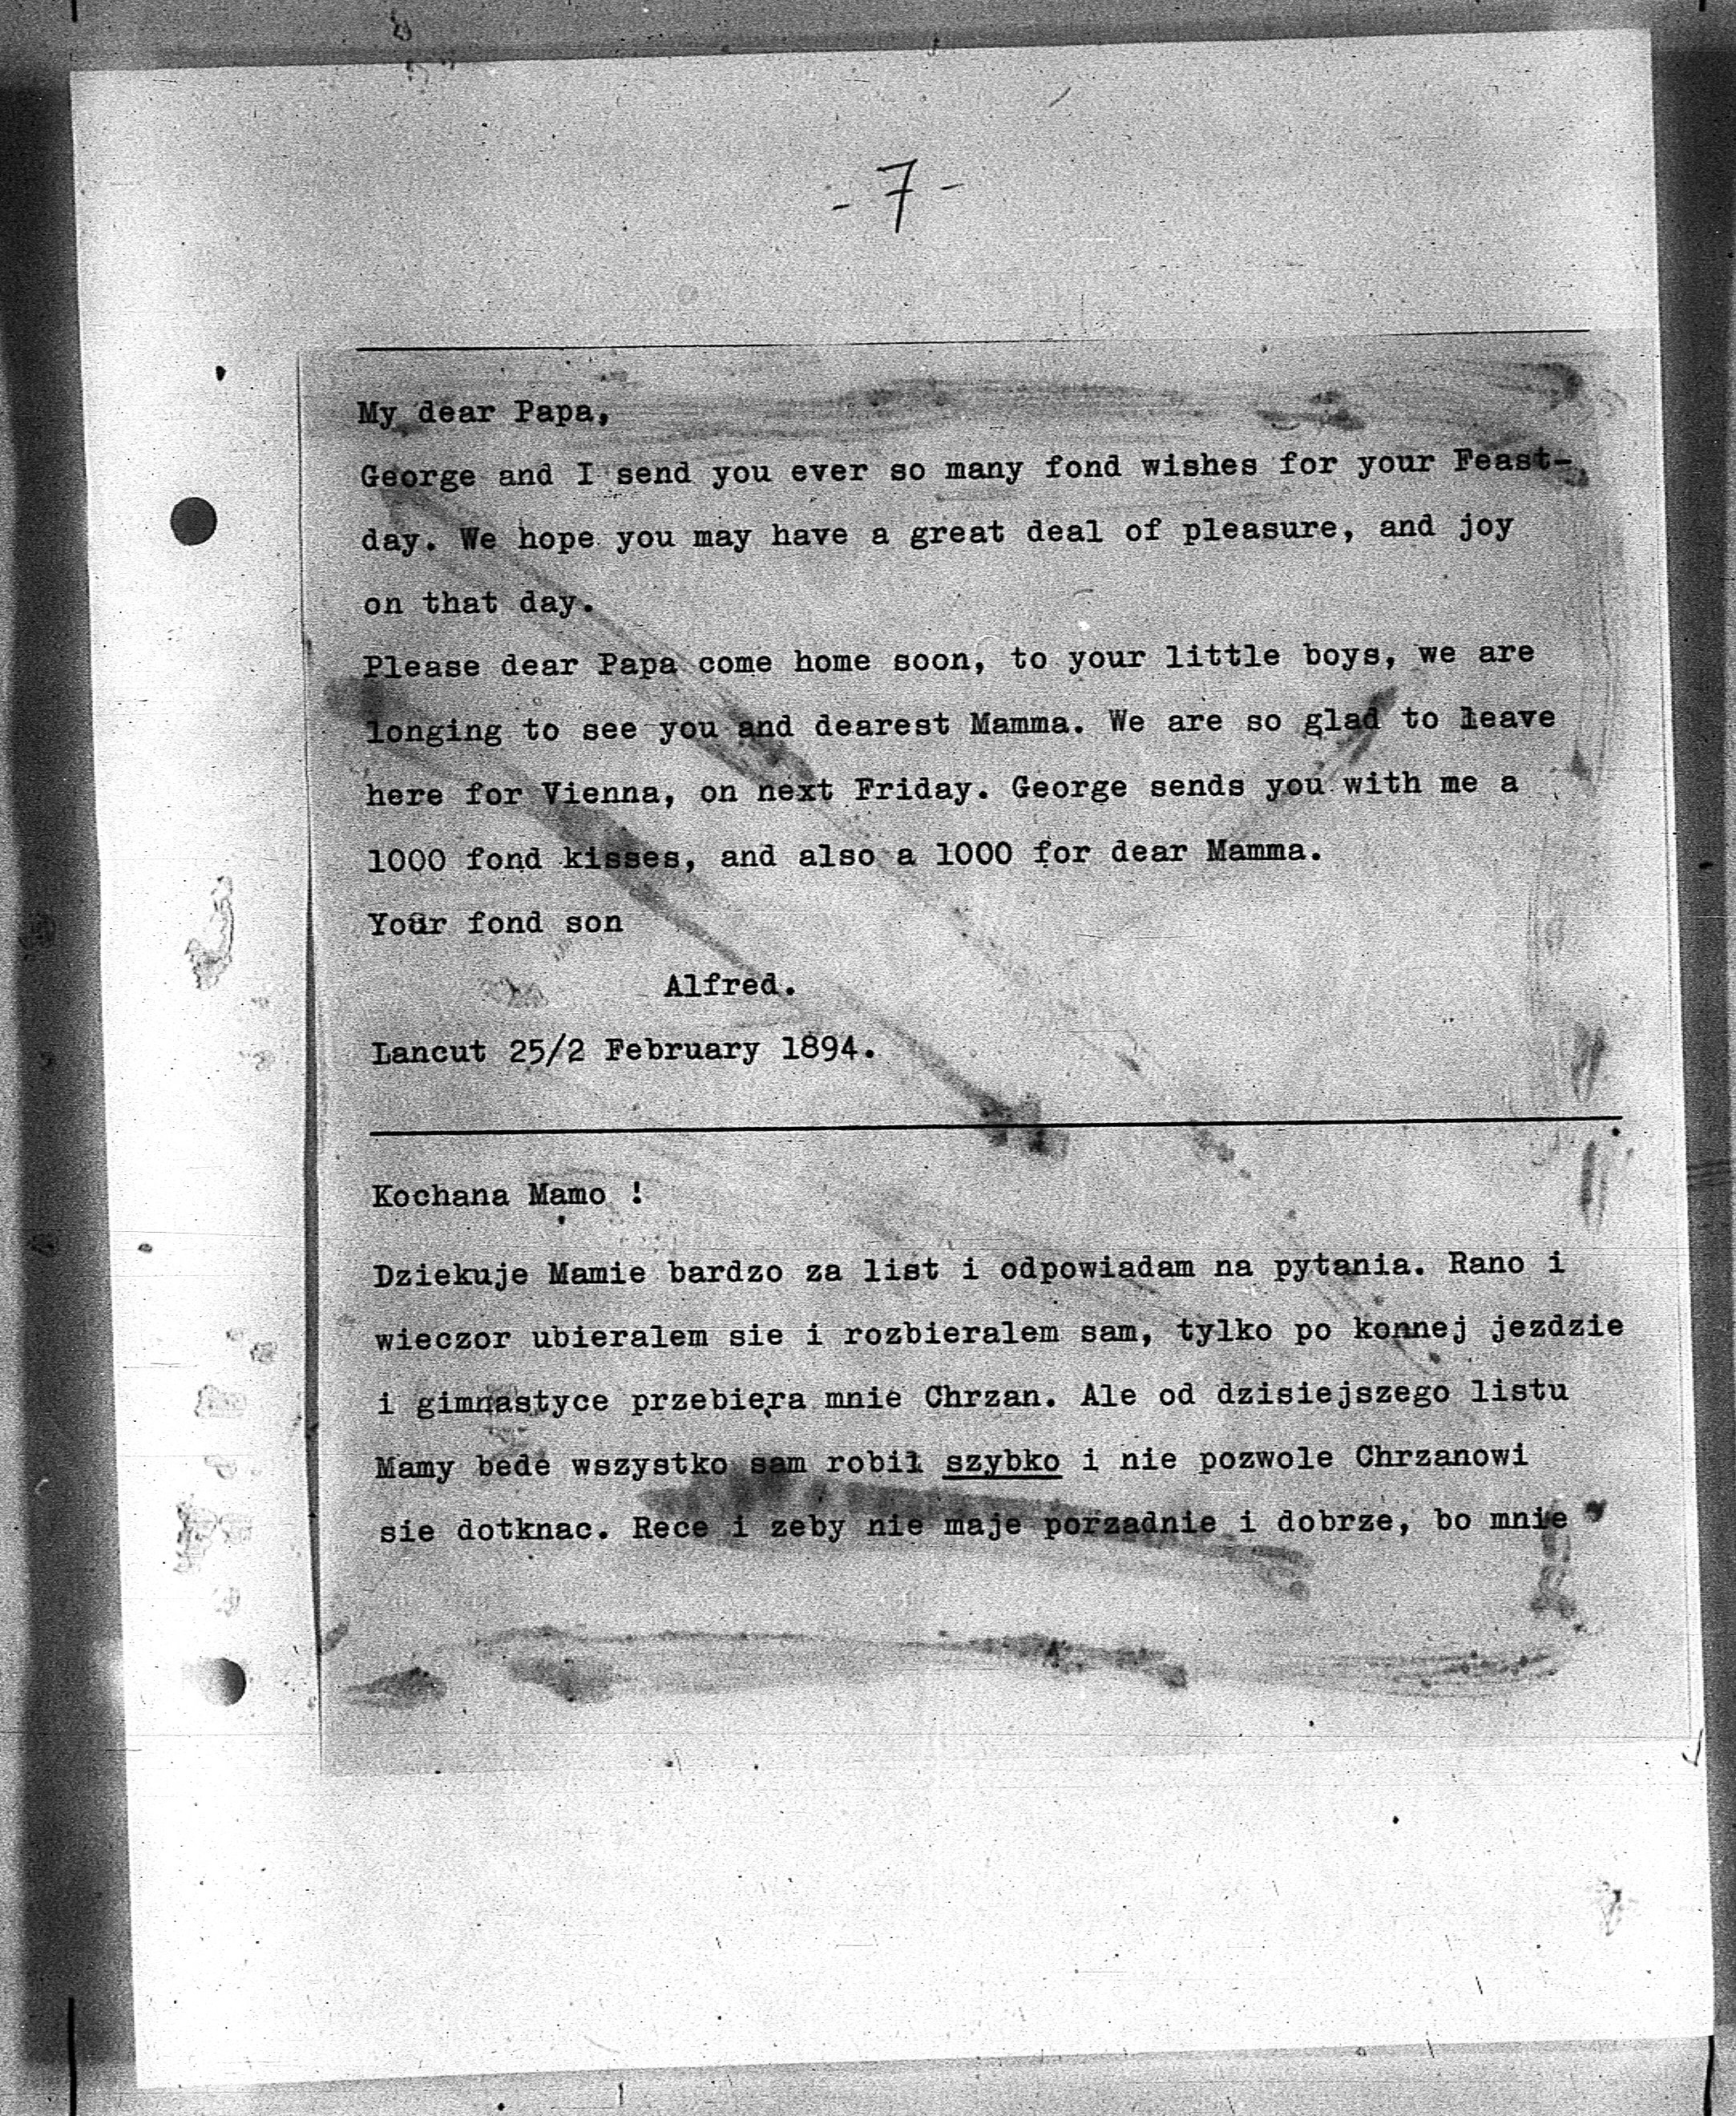 - 7 -
My dear Papa,
George and I send you ever so many fond wishes for your Feast-
day. We hope you may have a great deal of pleasure, and joy
on that day.
Please dear Papa come home soon, to your little boys, we are
longing to see you and dearest Mamma. We are so glad to leave
here for Vienna, on next Friday. George sends you with me a
1000 fond kisses, and also a 1000 for dear Mamma.
Your fond son
Alfred.
Lancut 25/2 February 1894.
Kochana Mamo !
Dziekuje Mamie bardzo za list i odpowiadam na pytania. Rano i
wieczor ubieralem sie i rozbieralem sam, tylko po konnej jezdzie
i gimnastyce przebiera mnie Chrzan. Ale od dzisiejszego listu
Mamy bede wszystko sam robil szybko i nie pozwole Chrzanowi
sie dotknac. Rece i zeby nie maje porzadnie i dobrze, bo mnie